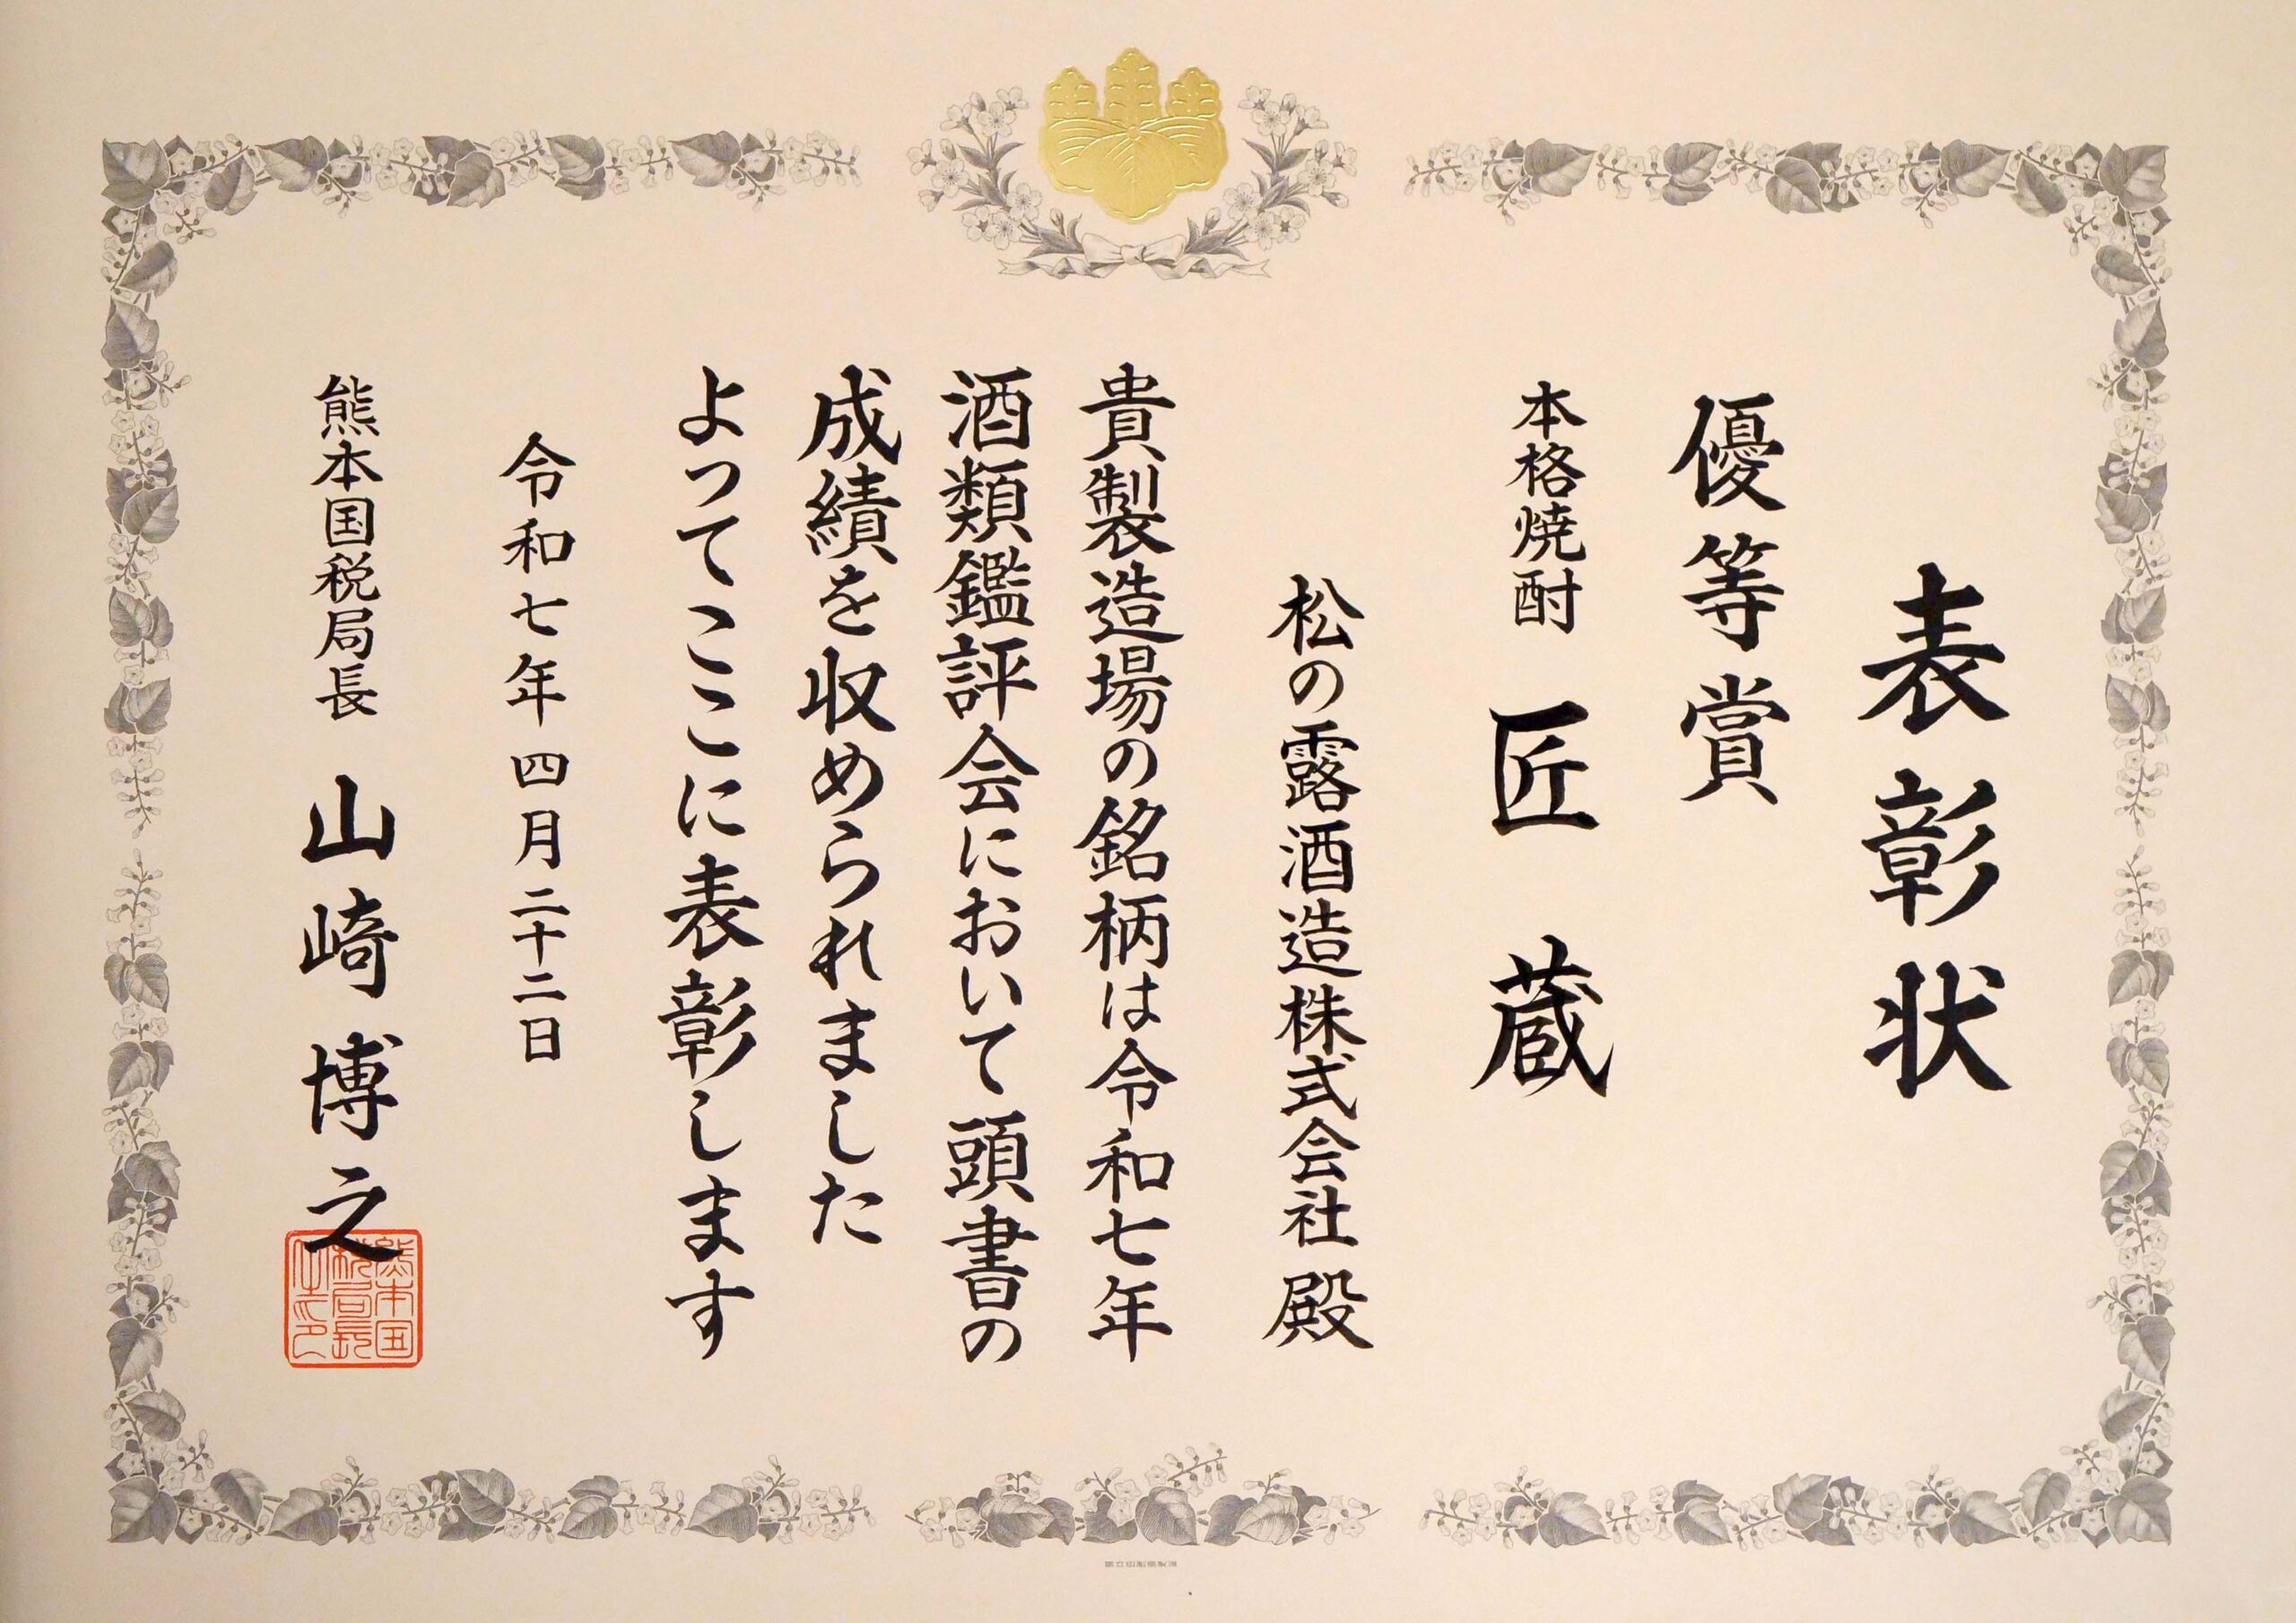 表彰状
優等賞
本格焼酎 匠蔵
松の露酒造株式会社 殿
貴製造場の銘柄は令和七年
酒類鑑評会において頭書の
成績を収められました
よってここに表彰します
令和七年四月二十二日
熊本国税局長 山崎博之
熊本国
税局長
之印